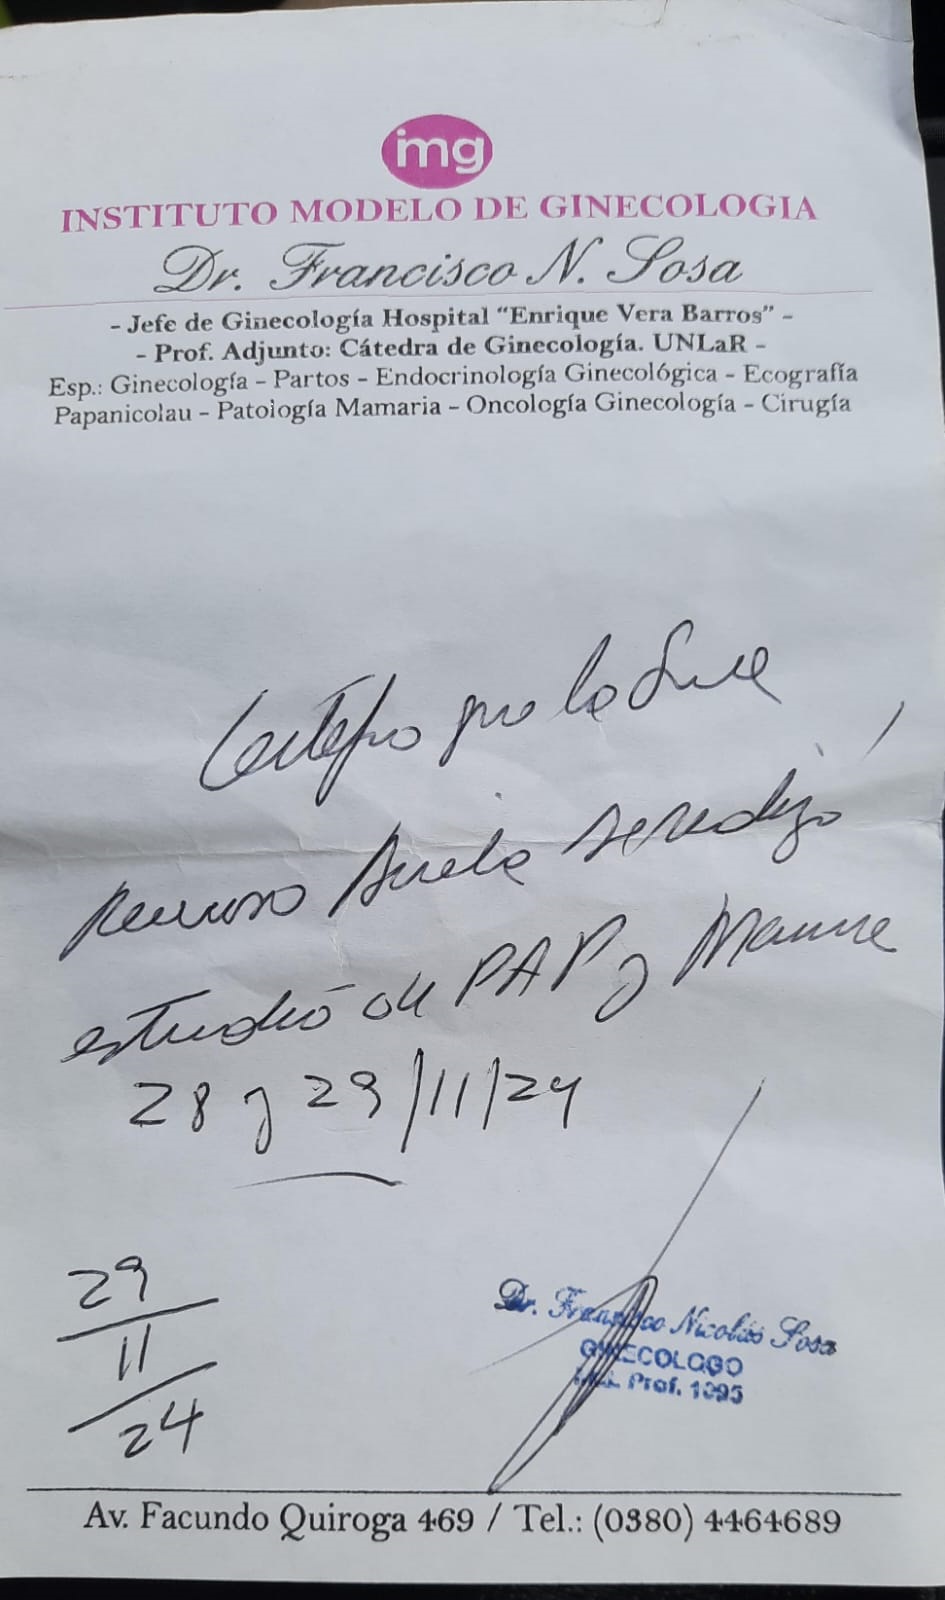 img
INSTITUTO MODELO DE GINECOLOGIA
Dr. Francisco N. Sosa
- Jefe de Ginecología Hospital "Enrique Vera Barros" -
- Prof. Adjunto: Cátedra de Ginecología. UNLaR -
Esp.: Ginecología - Partos - Endocrinología Ginecológica - Ecografía
Papanicolau - Patología Mamaria - Oncología Ginecología - Cirugía
Certifico que la Sra
se realizó
estudio de PAP y
28 y 29/11/24
29
11
24
Dr. Francisco Nicolás Sosa
GINECOLOGO
Prof. 1095
Av. Facundo Quiroga 469 / Tel.: (0380) 4464689